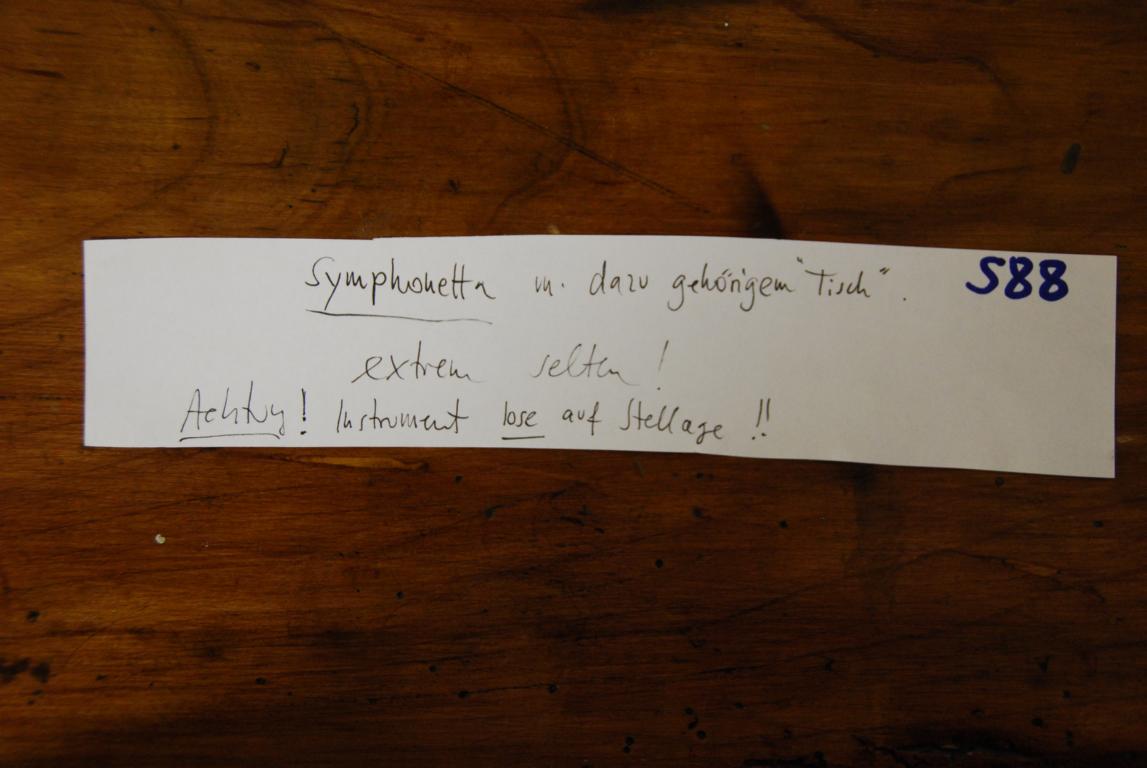 Symphonetta m. dazu gehörigem "Tisch". S88
extrem selten!
Achtung! Instrument lose auf Stellage!!